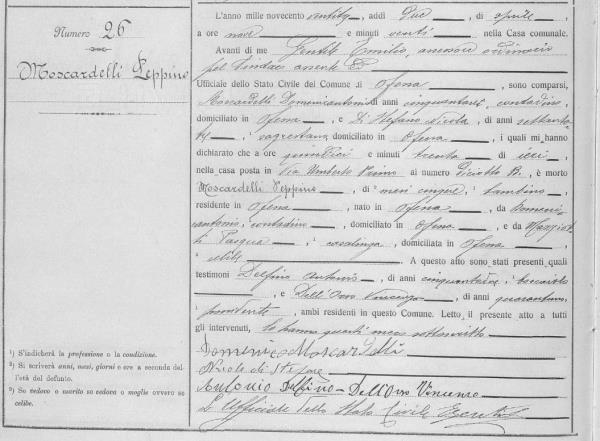 Numero 26
Moscardelli Peppino
¹) S'indicherà la professione o la condizione.
²) Si scriverà anni, mesi, giorni e ore a seconda dell'età del defunto.
³) Se vedovo o marito se vedova o moglie ovvero se celibe.
L'anno mille novecento venti, addì due, di aprile,
a ore nove e minuti venti nella Casa comunale.
Avanti di me Gentile Emilio, assessore ordinario
pel Sindaco assente
Ufficiale dello Stato Civile del Comune di Ofena, sono comparsi,
Moscardelli Domenicantonio di anni cinquantatre, contadino,
domiciliato in Ofena, e Di Stefano Nicola, di anni settanta
sagrestano, domiciliato in Ofena, i quali mi hanno
dichiarato che a ore quindici e minuti trenta di ieri,
nella casa posta in Via Umberto Primo al numero diciotto B., è morto
Moscardelli Peppino, di mesi cinque, bambino,
residente in Ofena, nato in Ofena, da Domeni-
cantonio, contadino, domiciliato in Ofena, e da
Pasqua, casalinga, domiciliata in Ofena,
A questo atto sono stati presenti quali
testimoni Delfino Antonio, di anni cinquantatre,
e Dell'Orso Vincenzo, di anni quarantuno,
possidente, ambi residenti in questo Comune. Letto il presente atto a tutti
gli intervenuti, lo hanno questi meco sottoscritto
Domenico Moscardelli
Nicola di Stefano
Antonio Delfino - Dell'Orso Vincenzo
L'Ufficiale dello Stato Civile EGentile